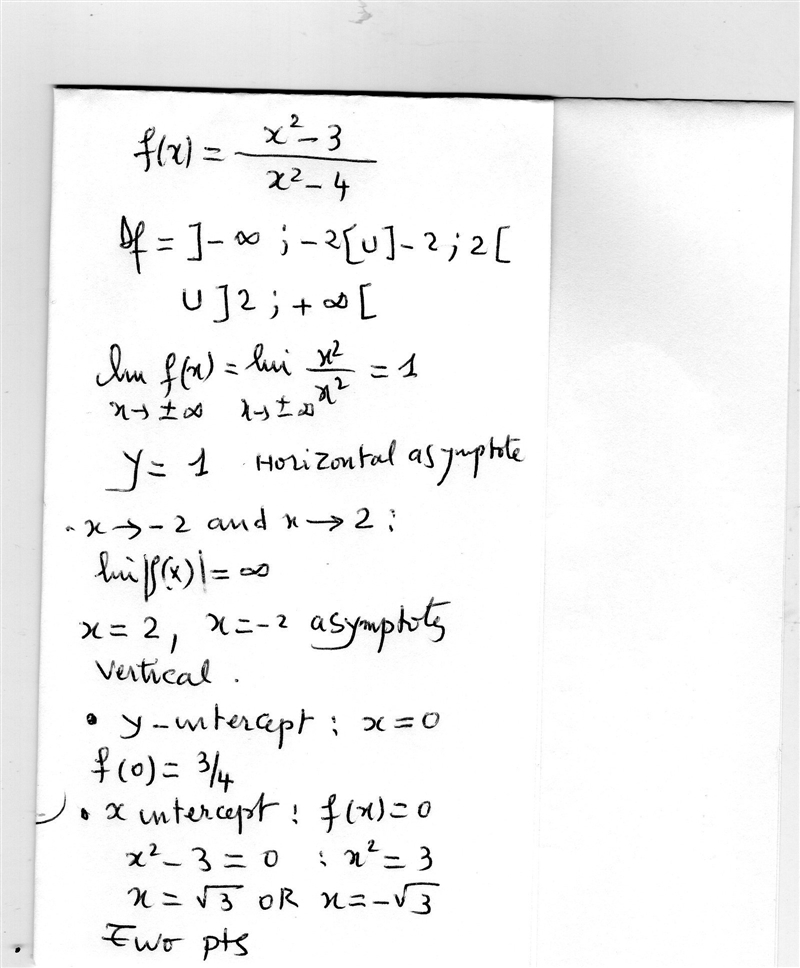 f(x) = x²-3 / x²-4
Df = ]-∞ ; -2[ U ]-2 ; 2[
U ]2 ; +∞[
lim f(x) = lim x²/x² = 1
x→±∞ x→±∞
y = 1 Horizontal asymptote
. x → -2 and x → 2 :
lim |f(x)| = ∞
x = 2, x = -2 asymptots
Vertical .
• y-intercept : x = 0
f(0) = 3/4
• x intercept : f(x) = 0
x²-3 = 0 : x² = 3
x = √3 OR x = -√3
Two pts